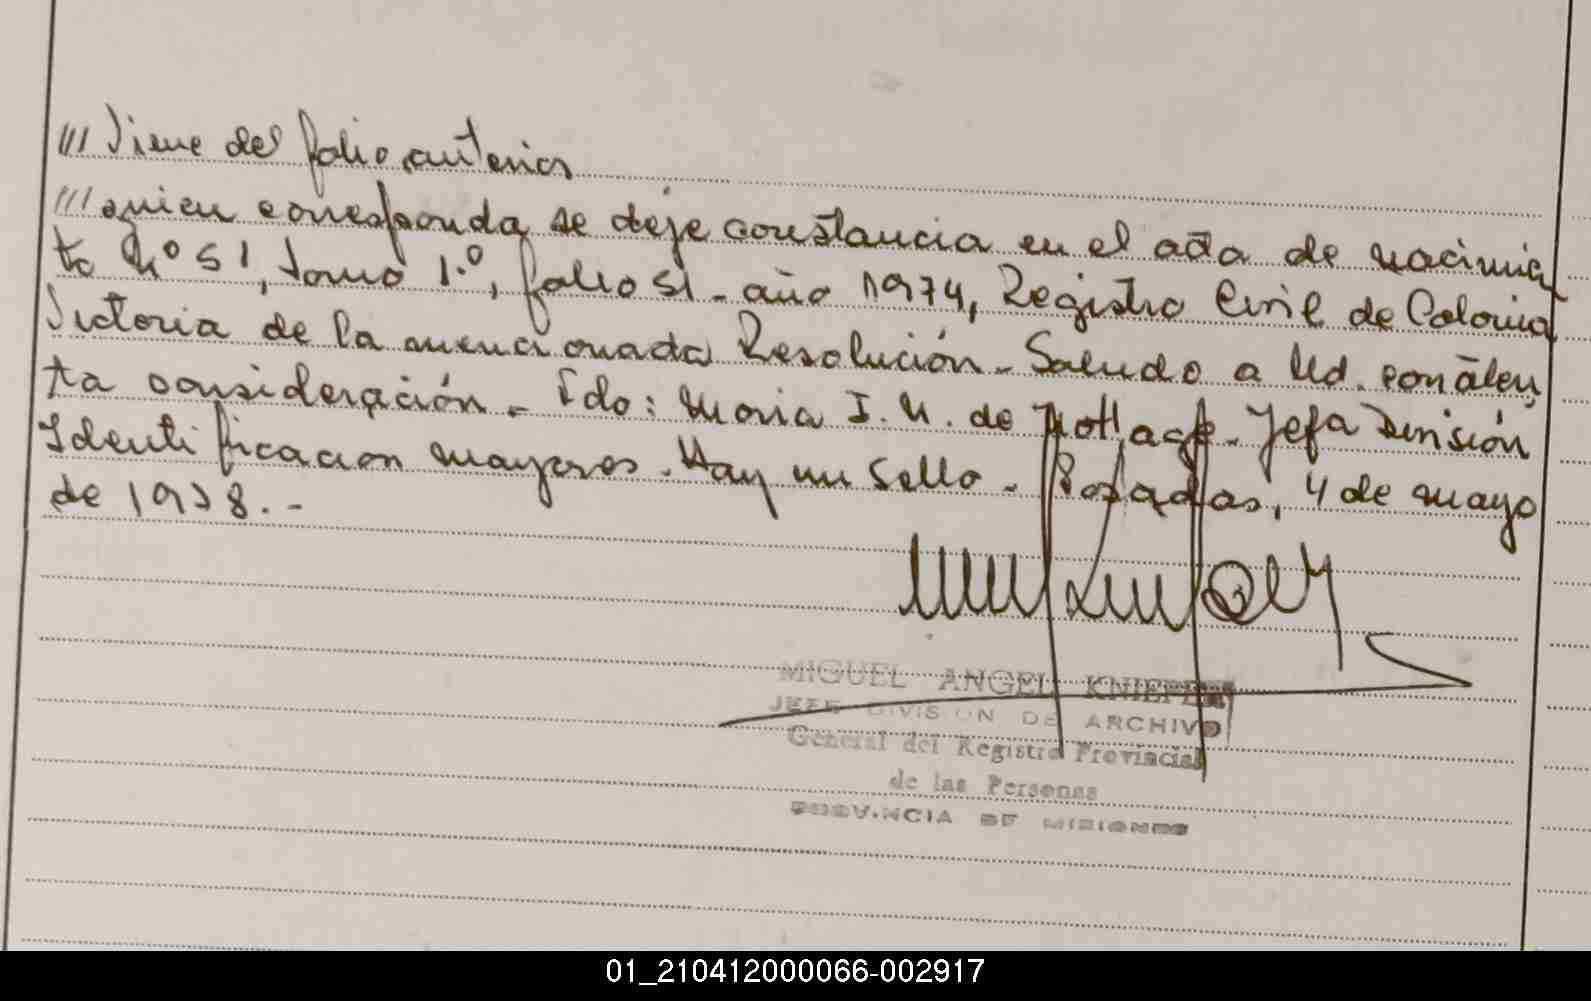 /// Viene del folio anterior
/// quien corresponda se deje constancia en el acta de nacimien
to Nº 51, tomo 1.º, folio 51 - año 1974, Registro Civil de Colonia
Victoria de la mencionada Resolución - Saludo a Ud. con aten
ta consideración - Fdo: Maria I. N. de - Jefa División
Identificacion mayores - Hay un Sello - Posadas, 4 de mayo
de 1978. -
MIGUEL ANGEL
JEFE DIVISION DE ARCHIVO
General del Registro Provincial
de las Personas
PROVINCIA DE MISIONES
01_210412000066-002917